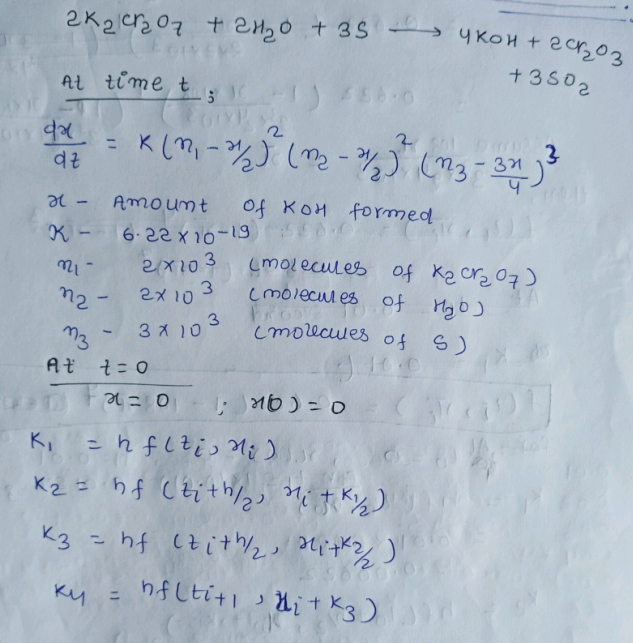 2K₂Cr₂O₇ + 2H₂O + 3S ⟶ 4KOH + 2Cr₂O₃
+ 3SO₂
At time t ;
dx/dt = K(n₁ - x/2)² (n₂ - x/2)² (n₃ - 3x/4)³
x - Amount of KOH formed
K - 6.22×10-19
n₁ - 2×10³ (molecules of K₂Cr₂O₇)
n₂ - 2×10³ (molecules of H₂O)
n₃ - 3×10³ (molecules of S)
At t=0
x=0 ; x(0)=0
K₁ = hf(tᵢ, xᵢ)
K₂ = hf (tᵢ+h/2, xᵢ+K₁/2)
K₃ = hf (tᵢ+h/2, xᵢ+K₂/2)
K₄ = hf(tᵢ+1, xᵢ+K₃)